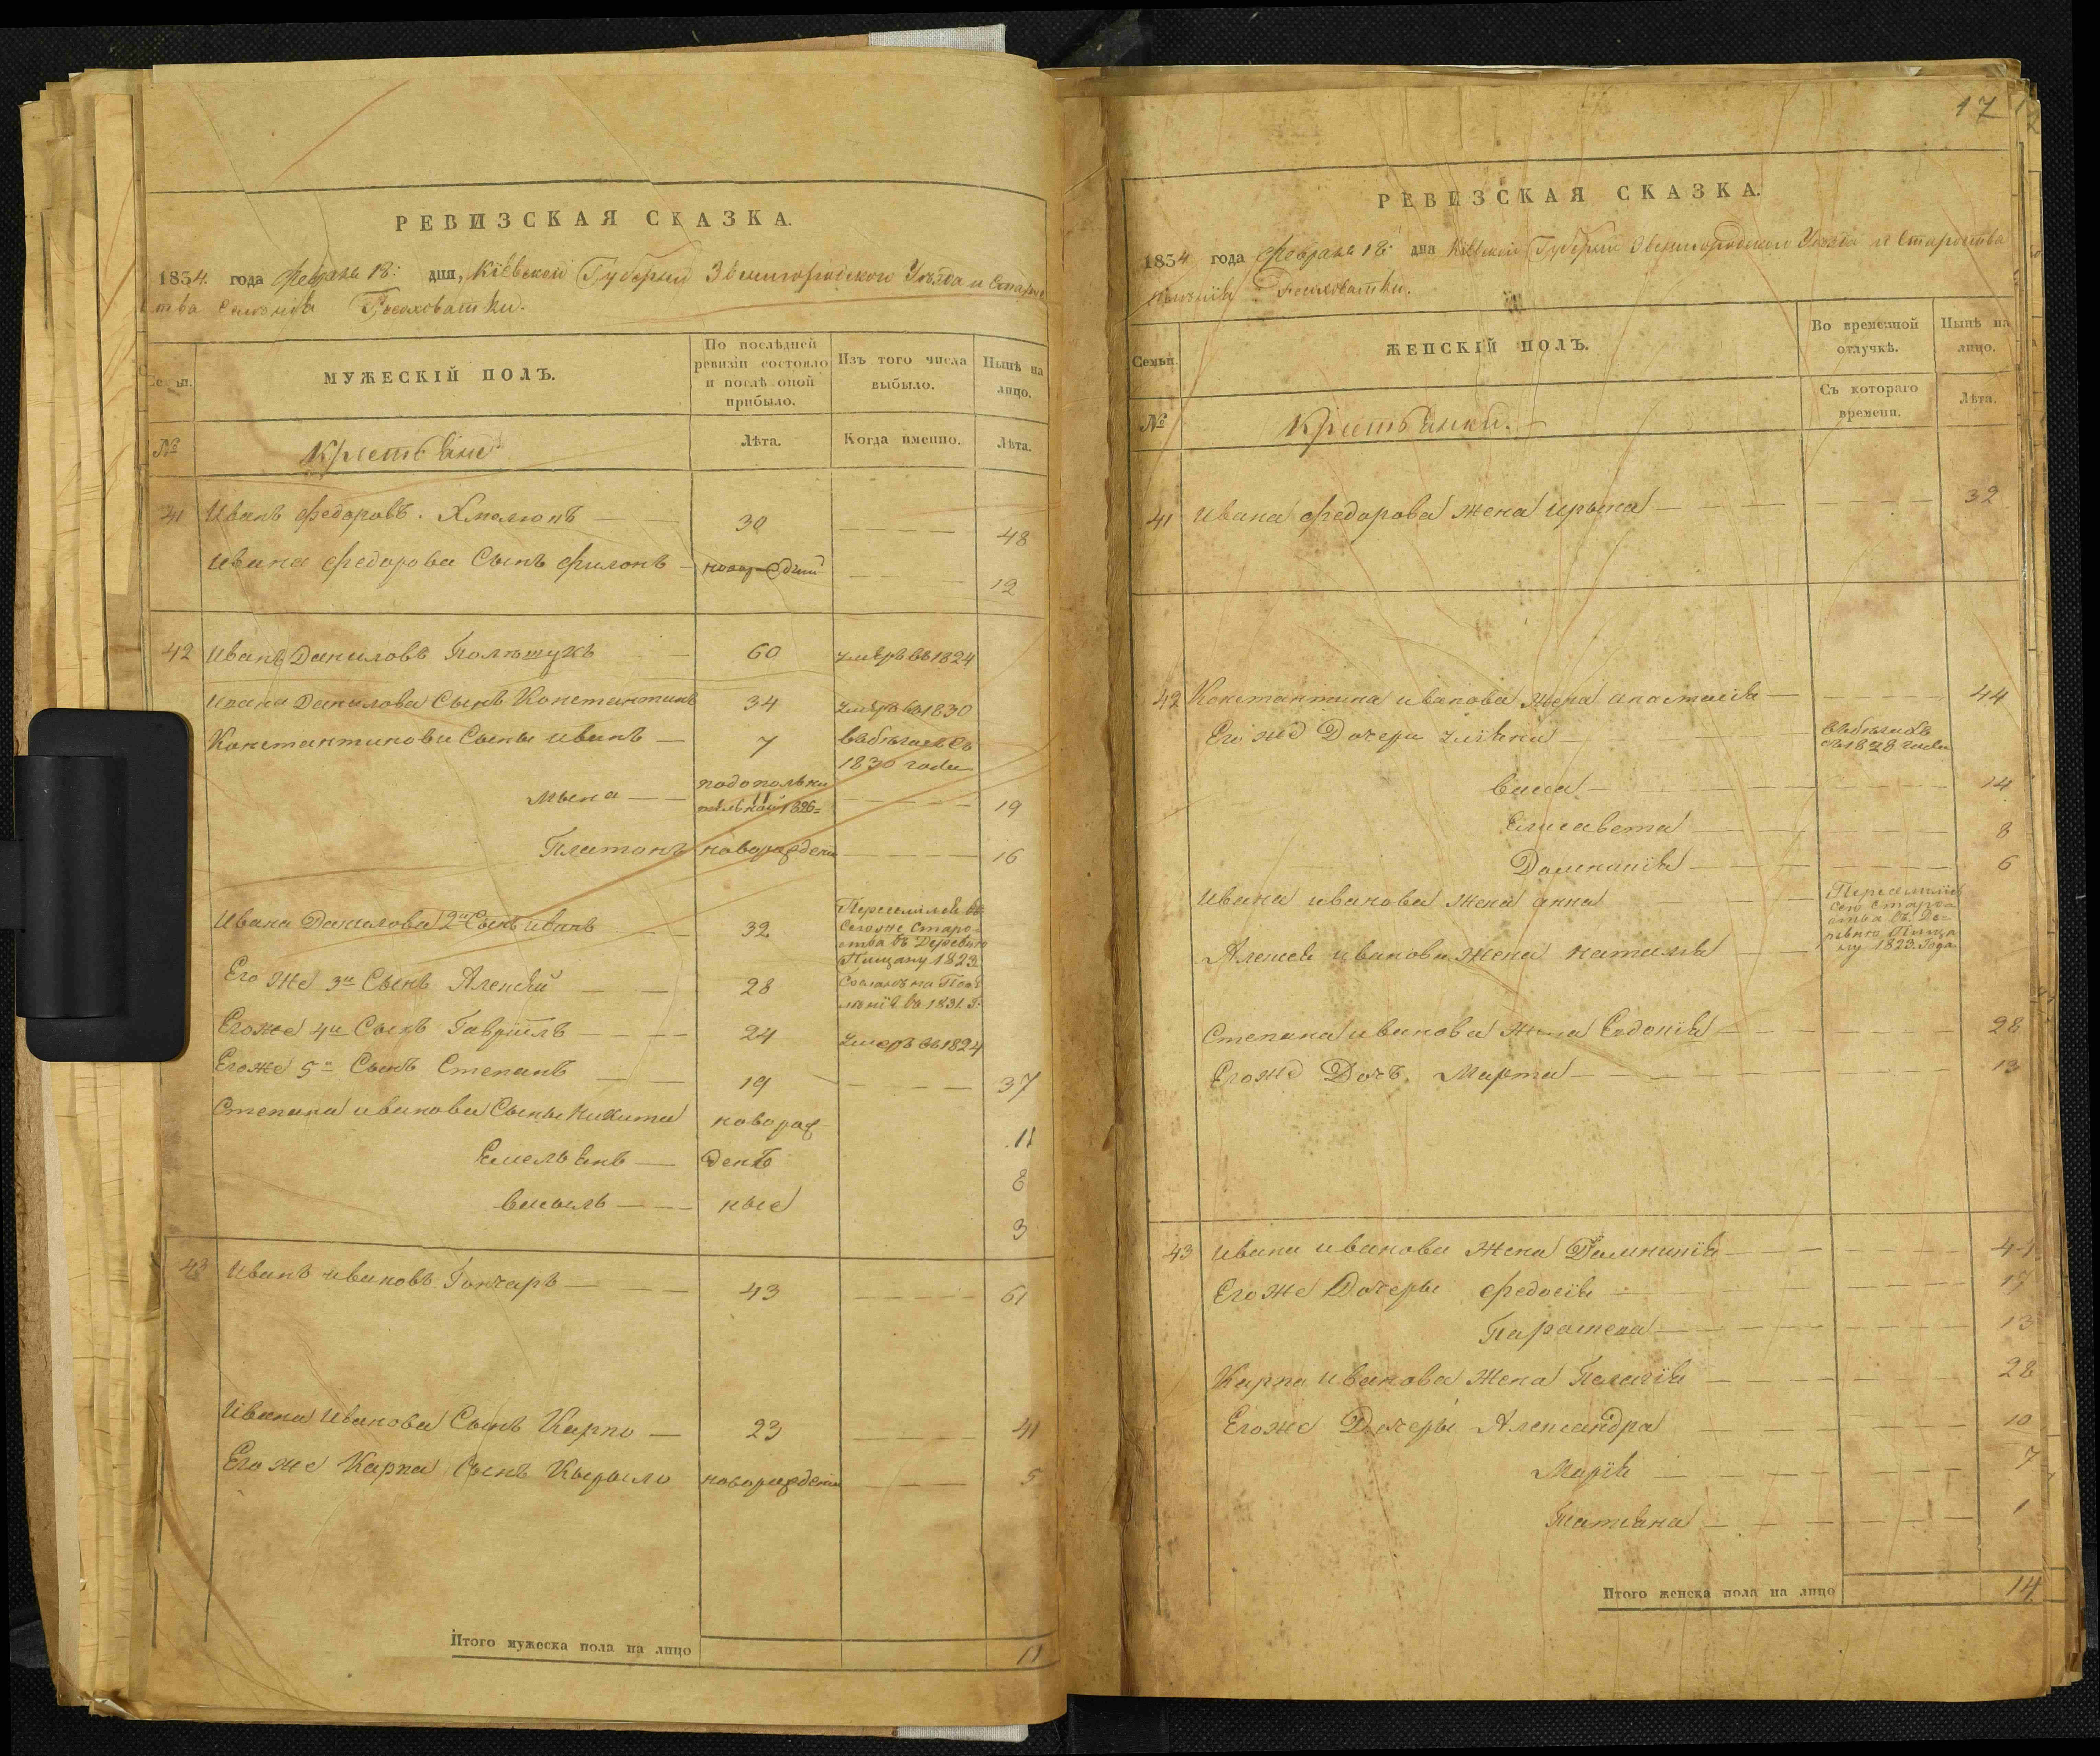 РЕВИЗСКАЯ СКАЗКА.
1834 года Февраль 18: дня, Кіевской Губерніи Звенигородского Уезда и Старос
тва Селенія
Семьи.
МУЖЕСКІЙ ПОЛЪ.
По послѣдней ревизіи состояло и послѣ оной прибыло.
Изъ того числа выбыло.
Нынѣ на лицо.
№
Крестьяне
Лѣта.
Когда именно.
Лѣта.
41 Иванъ Федоровъ. 30 48
Ивана Федорова Сынъ Филонъ 12
42 Иванъ Даниловъ Полѣшукъ 60 умеръ въ 1824
Ивана Данилова Сынъ Константинъ 34 умеръ въ 1830
Константинови Сыны иванъ 7 въ бѣгахъ съ
1830 года
1826 19
Платонъ новорожден 16
Ивана Данилова 2й Сынъ иванъ 32 Переселился въ
Сегоже старо-
ства въ Деревню
Пищану 1823
Его же 3й Сынъ Алексѣй 28 Сосланъ на Посе
леніе въ 1831. г.
Егоже 4й Сынъ Гаврیілъ 24 Умеръ въ 1824
Егоже 5й Сынъ Степанъ 19 37
Степана иванова Сыны Никита новораж 11
Емельянъ ден 8
василь ные 3
43 Иванъ ивановъ Гончаръ 43 61
Ивана Иванова Сынъ Карпо 23 41
Его же Карпа Сынъ Кырыло новорожден 5
Итого мужеска пола на лицо 11
17
РЕВИЗСКАЯ СКАЗКА.
1834 года Февраль 18: дня Кіевской Губерніи Звенигородского Уезда и Староства
Селенія
Семьи.
ЖЕНСКІЙ ПОЛЪ.
Во временной отлучкѣ.
Нынѣ на лицо.
№
Крестьянки.
Съ котораго времени.
Лѣта.
41 Ивана Федорова жена Ирына 32
42 Константина иванова жена анастасія 44
Его же Дочери въ бѣгахъ
съ 1828 года
14
Елисавета 8
Домникія 6
Ивана иванова жена анна Переселился
сего старо
ства въ Де=
ревню Пища
ну 1823. Года
Алексея иванова жена наталія
Степана иванова жена Евдокія 28
Егоже Дочь Марта 13
43 Ивана иванова жена Домникія 41
Егоже Дочеры Федосія 17
Параскева 13
Карпа иванова жена Пелагія 28
Егоже Дочеры Александра 10
Марія 7
Татіяна 1
Итого женска пола на лицо 14